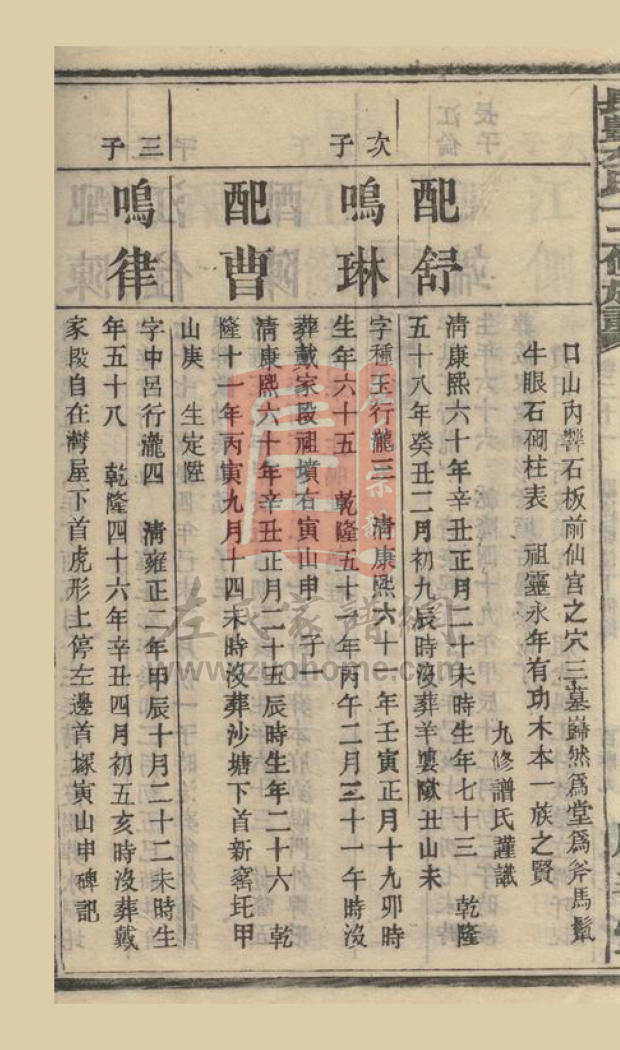 口山內響石板前仙宮之穴三墓巋然爲堂爲斧馬鬣
牛眼石砌柱表　祖靈永年有功木本一族之賢
九修譜氏謹識
配舒
淸康熙六十年辛丑正月二十未時生年七十三　乾隆
五十八年癸丑二月初九辰時沒葬羊婁𡑞丑山未
次子
鳴琳
字種玉行瀧三　淸康熙六十　年壬寅正月十九卯時
生年六十五　乾隆五十　年丙午二月三十一午時沒
葬戴家段祖墳右寅山申　子一
配曹
淸康熙六十年辛丑正月二十五辰時生年二十六　乾
隆十一年丙寅九月十四未時沒葬沙塘下首新窰坨甲
山庚　生定陞
三子
鳴律
字中呂行瀧四　淸雍正二年甲辰十月二十二未時生
年五十八　乾隆四十六年辛丑四月初五亥時沒葬戴
家段自在灣屋下首虎形上停左邊首塚寅山申碑記
左氏家譜網
www.zuohome.com